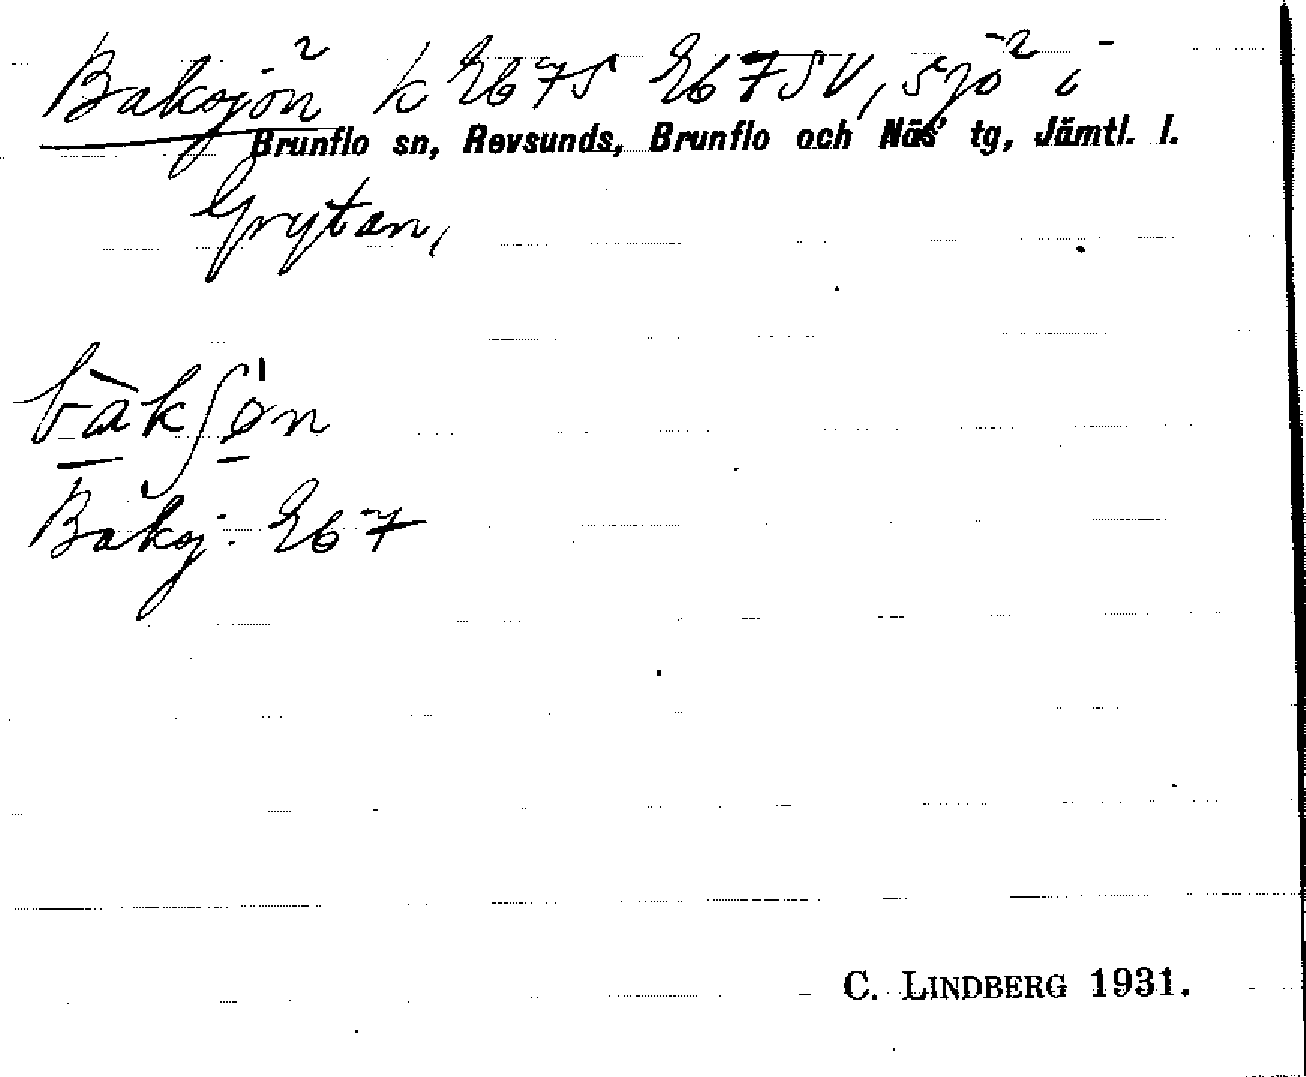 Baksjön k Eb 7S Eb 7SV, sjö i
Brunflo sn, Revsunds, Brunflo och Näs' tg, Jämtl. l.
Grytan,
bàkʃøn
Baksj. Eb 7
C. LINDBERG 1931.